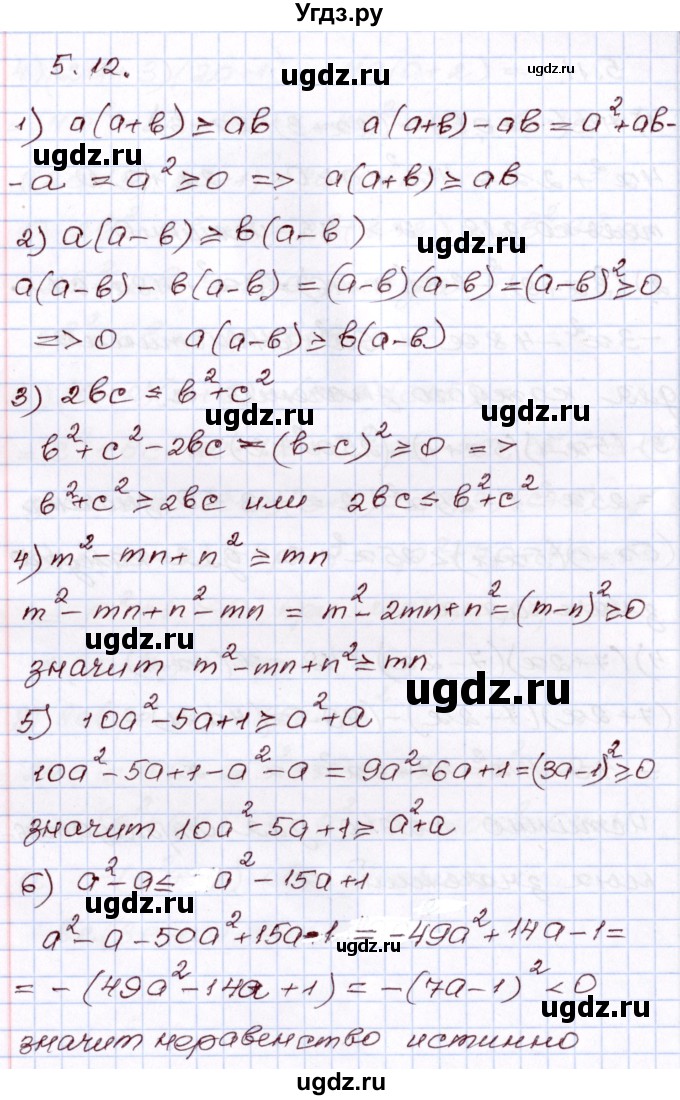 Угдз.ру
5.12.
ugdz.ru
ugdz.ru
1) a(a+в) ≥ aв a(a+в) - aв = a²+aв-
ugdz.ru
-a = a² ≥ 0 => a(a+в) ≥ aв
2) a(a-в) ≥ в(a-в)
ugdz.ru
a(a-в) - в(a-в) = (a-в)(a-в) = (a-в)² ≥ 0
=> 0 a(a-в) ≥ в(a-в)
3) 2вc ≤ в²+c²
ugdz.ru
ugdz.ru
в²+c²-2вc = (в-c)² ≥ 0 =>
в²+c² ≥ 2вc или 2вc ≤ в²+c²
4) m²-mn+n² ≥ mn
m²-mn+n²-mn = m²-2mn+n² = (m-n)² ≥ 0
ugdz.ru
значит m²-mn+n² ≥ mn
ugdz.ru
5) 10a²-5a+1 ≥ a²+a
10a²-5a+1-a²-a = 9a²-6a+1 = (3a-1)² ≥ 0
значит 10a²-5a+1 ≥ a²+a
6) a²-a ≤ a²-15a+1
ugdz.ru
a²-a-50a²+15a-1 = -49a²+14a-1 =
ugdz.ru
= -(49a²-14a+1) = -(7a-1)² < 0
ugdz.ru
значит неравенство истинно
ugdz.ru